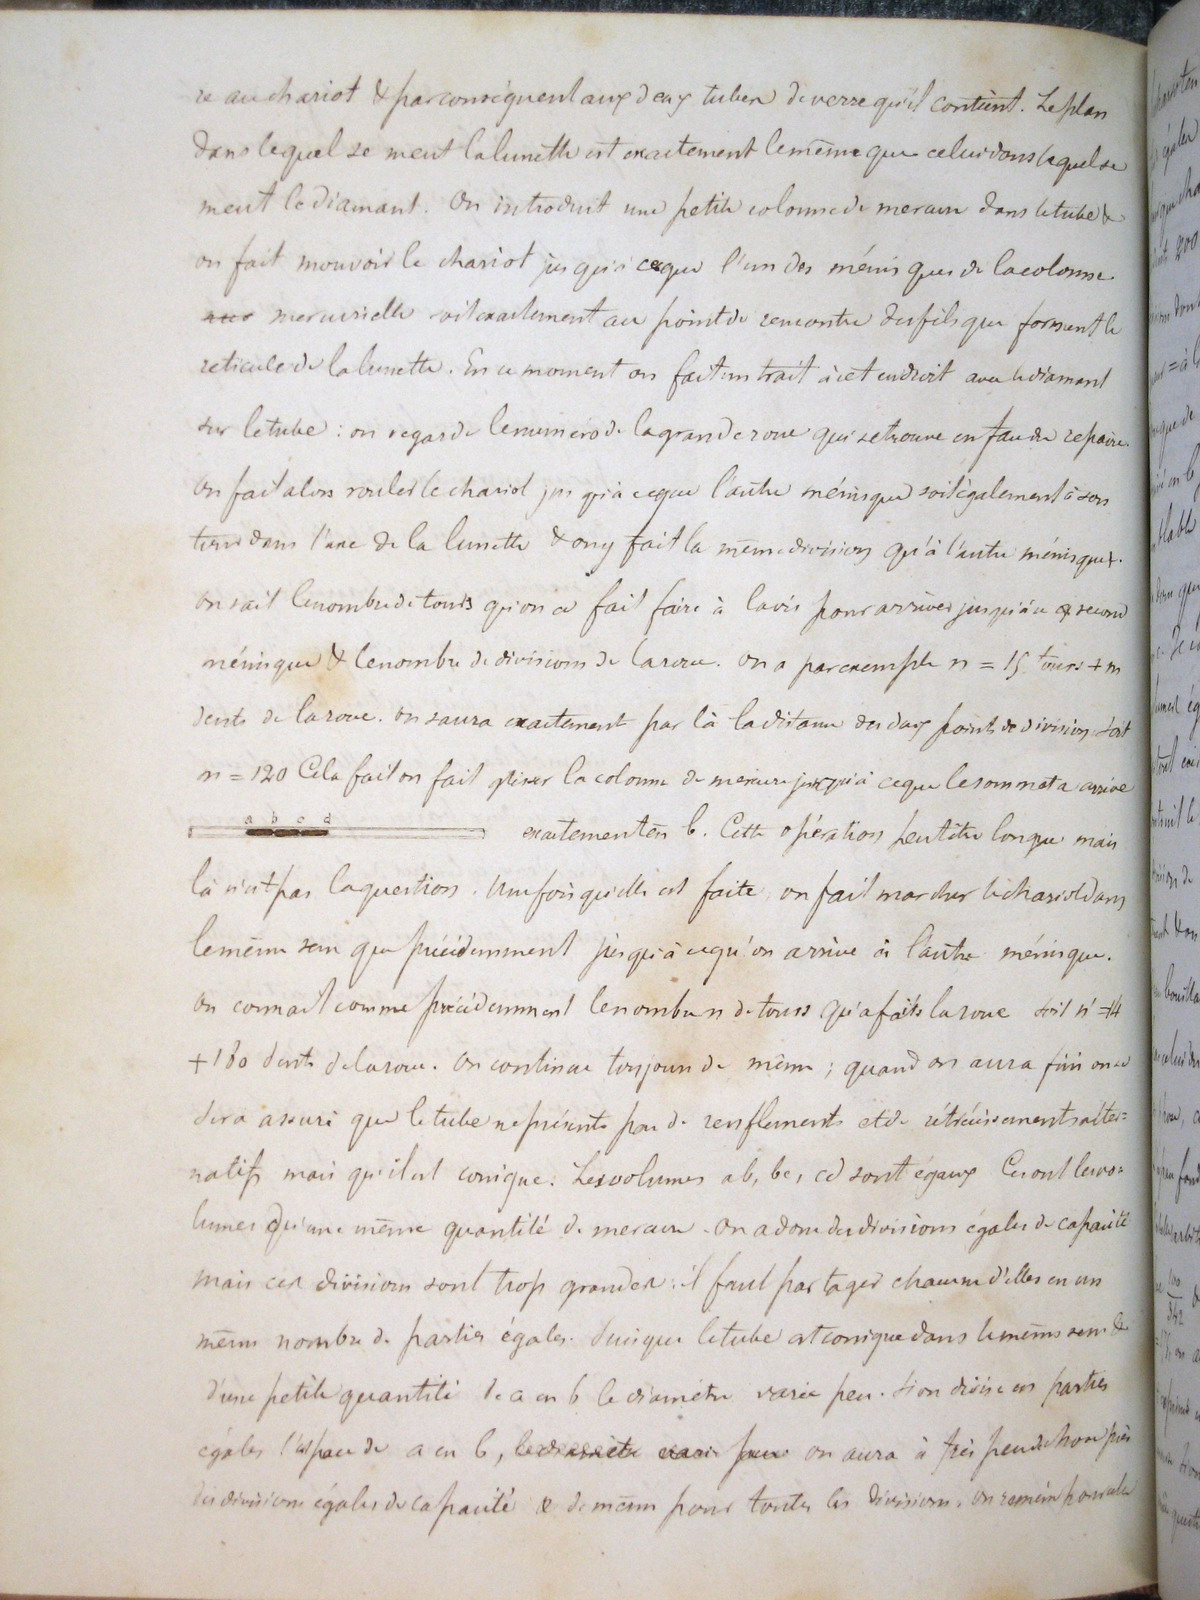 re au chariot & par conséquent aux deux tubes de verre qu'il contient. Le plan
dans lequel se meut la lunette est exactement le même que celui dans lequel se
meut le diamant. On introduit une petite colonne de mercure dans le tube &
on fait mouvoir le chariot jusqu'à ce que l'un des ménisques de la colonne
mercurielle soit exactement au point de rencontre des fils qui forment le
reticule de la lunette. En ce moment on fait un trait à cet endroit avec le diamant
sur le tube : on regarde le numéro de la grande roue qui se trouve en face du repaire.
On fait alors rouler le chariot jusqu'à ce que l'autre ménisque soit également à son
tour dans l'axe de la lunette & on y fait la même division qu'à l'autre ménisque.
On sait le nombre de tours qu'on a fait faire à la vis pour arriver jusqu'à ce second
ménisque & le nombre de divisions de la roue. On a par exemple n = 15 tours + m
dents de la roue. On saura exactement par là la distance des deux points de division. Soit
m = 120 Cela fait on fait glisser la colonne de mercure jusqu'à ce que le sommet a arrive
a b c d
exactement en b. Cette opération peut être longue mais
là n'est pas la question. Une fois qu'elle est faite, on fait marcher le chariot dans
le même sens que précédemment jusqu'à ce qu'on arrive à l'autre ménisque.
On connait comme précédemment le nombre n de tours qu'a faits la roue soit n' = 14
+ 180 dents de la roue. On continue toujours de même ; quand on aura fini on se
sera assuré que le tube ne présente pas de renflements et de rétrécissements alter=
natifs mais qu'il est conique. Les volumes ab, bc, cd sont égaux Ce sont les vo=
lumes d'une même quantité de mercure. On a donc des divisions égales de capacité
mais ces divisions sont trop grandes : il faut partager chacune d'elles en un
même nombre de parties égales. Puisque le tube est conique dans le même sens &
d'une petite quantité de a en b le diamètre varie peu. Si on divise en parties
égales l'espace de a en b, le diamètre varie peu on aura à très peu de chose près
des divisions égales de capacité & de même pour toutes les divisions. On